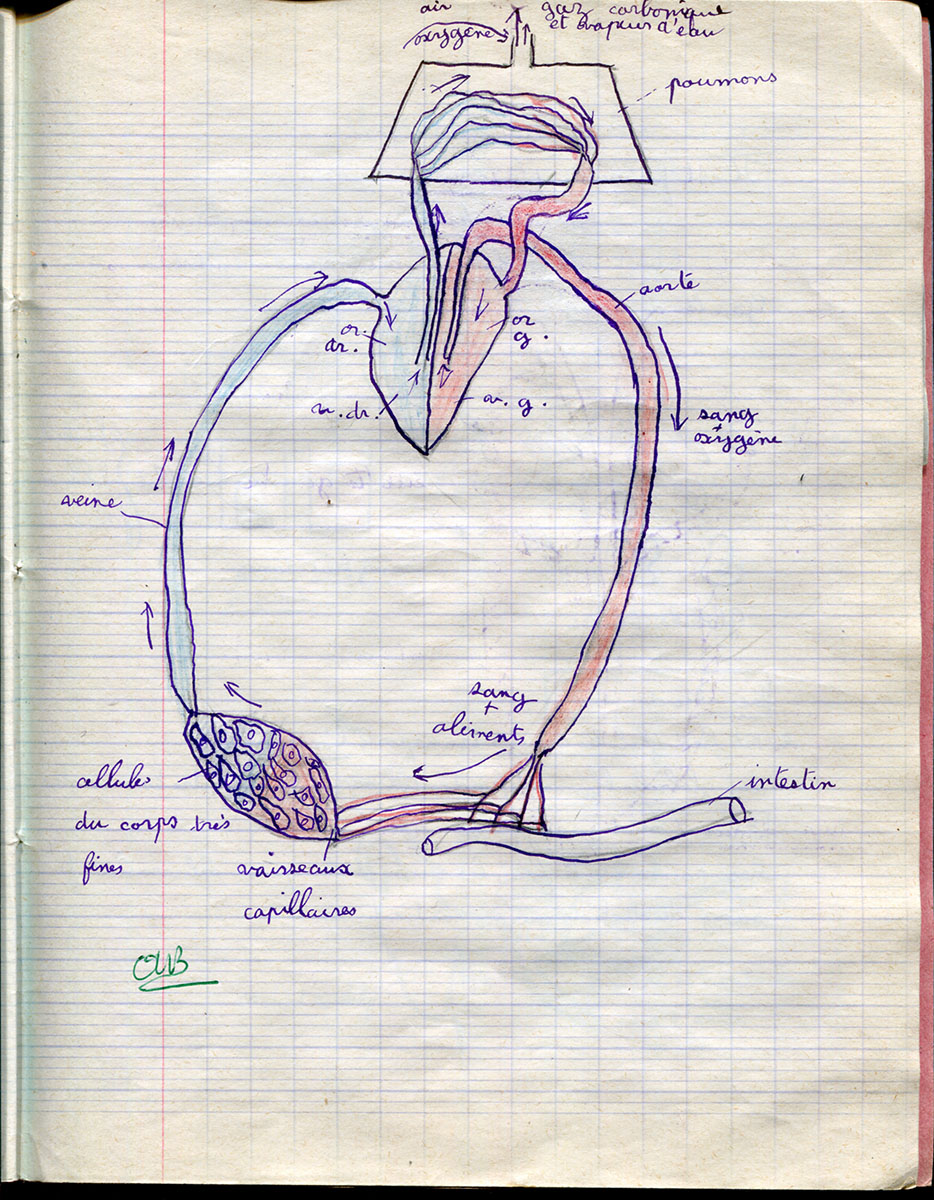 air
oxygène
gaz carbonique
et vapeur d'eau
poumons
aorte
or.
dr.
or
g.
v. dr.
v. g.
sang
+
oxygène
veine
sang
+
aliments
intestin
cellules
du corps très
fines
vaisseaux
capillaires